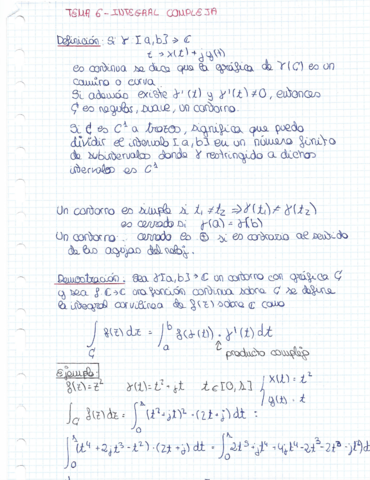 TEMA 6 - INTEGRAL COMPLEJA
Definición: Si γ [a,b] → ℂ
t → x(t) + j y(t)
es continua se dice que la gráfica de γ(ζ) es un
camino o curva.
Si además existe γ'(t) y γ'(t) ≠ 0, entonces
ζ es regular, suave, un contorno.
Si ζ es C¹ a trozos, significa que puedo
dividir el intervalo [a,b] en un número finito
de subintervalos donde γ restringido a dichos
intervalos es C¹
Un contorno es simple si t₁ ≠ t₂ ⇒ γ(t₁) ≠ γ(t₂)
es cerrado si γ(a) = γ(b)
Un contorno cerrado es ⊕ si es contrario al sentido
de las agujas del reloj.
Demostración: Sea γ [a,b] → ℂ un contorno con gráfica ζ
y sea f ℂ → ℂ una función continua sobre ζ se define
la integral curvilínea de f(z) sobre ζ como
∫_ζ f(z) dz = ∫_a^b f(γ(t)) · γ'(t) dt
producto complejo
Ejemplo:
f(z) = z² γ(t) = t² + jt t ∈ [0,1] x(t) = t²
y(t) = t
∫_ζ f(z) dz = ∫_0^1 (t² + jt)² · (2t + j) dt =
∫_0^1 (t⁴ + 2jt³ - t²) · (2t + j) dt = ∫_0^1 2t⁵ + jt⁴ + 4jt⁴ - 2t³ - 2t³ - jt² dt